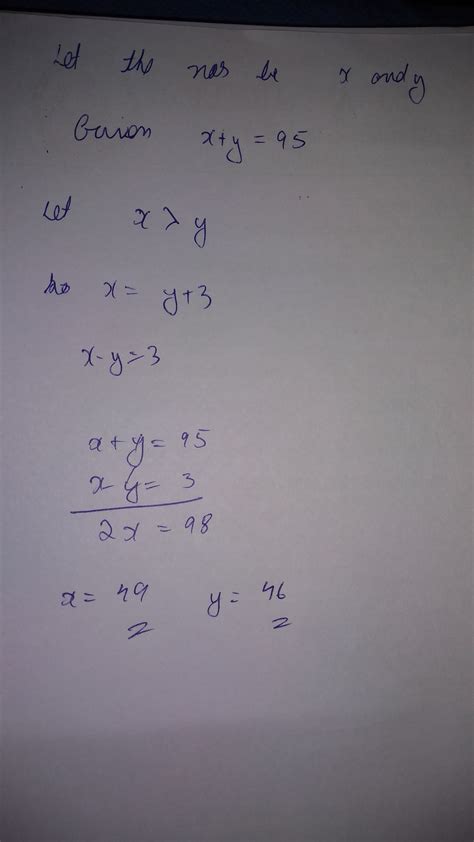 Let the nos be x and y
Given x+y = 95
Let x > y
So x = y+3
x-y=3
x+y= 95
x-y= 3
2x = 98
x= 49 y= 46